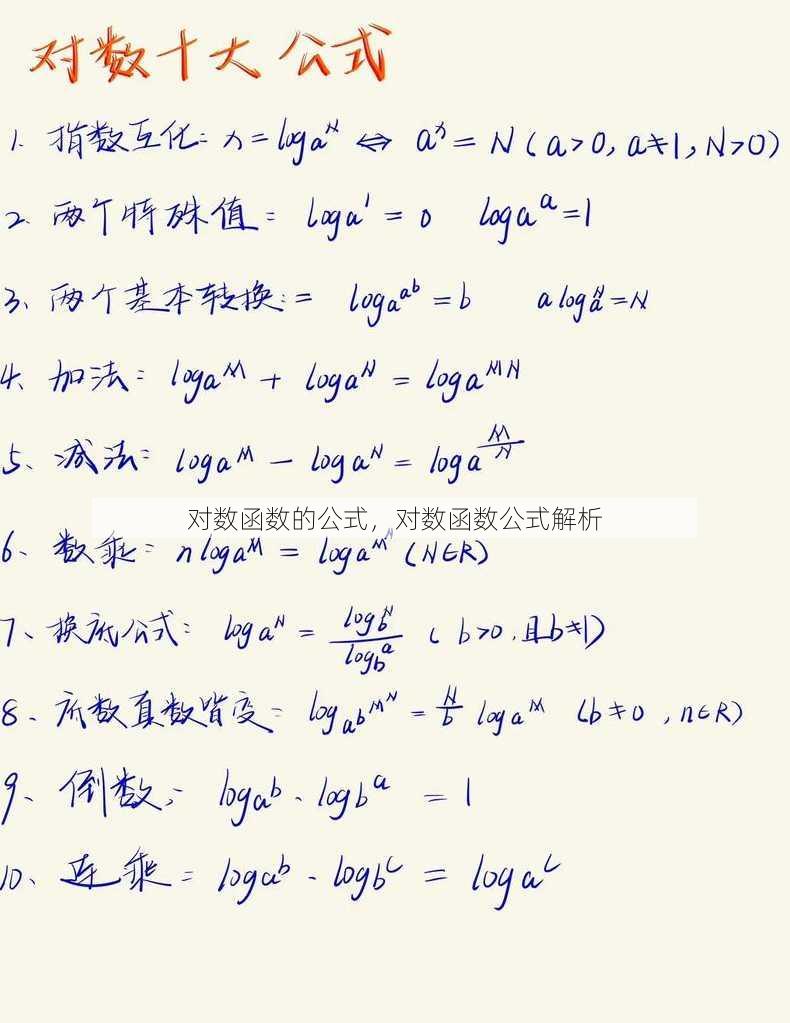 对数十大公式
1. 指数互化: x = logₐᴺ ⇔ aˣ = N (a>0, a≠1, N>0)
2. 两个特殊值: logₐ¹ = 0 logₐᵃ = 1
3、两个基本转换: = logₐaᵇ = b a logₐᴺ = N
4、加法: logₐᴹ + logₐᴺ = logₐᴹᴺ
5、减法: logₐᴹ − logₐᴺ = logₐ^(M/N)
对数函数的公式，对数函数公式解析
6、数乘: n logₐᴹ = logₐM^N (N∈R)
7、换底公式: logₐᴺ = log_b^N / log_b^a ( b>0, 且b≠1)
8、底数真数皆变: log_(a^b) M^N = N/b logₐᴹ (b≠0, n∈R)
9、倒数: logₐᵇ · log_b^a = 1
10、连乘: logₐᵇ · log_b^c = logₐ^c